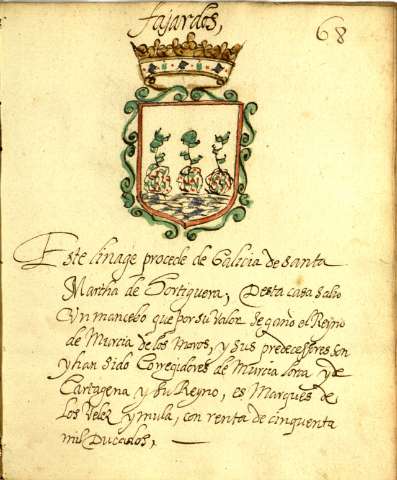 fajardos,
68
Este linage procede de Galicia de santa
Martha de Hortiguera, Desta casa salio
Un mancebo que por su valor se gano el Reyno
de Murcia de los moros, y sus predecessores son
y han sido Corregidores de Murcia lorca y de
Cartagena y su Reyno, es Marques de
los Velez y mula, con renta de cinquenta
mil Ducados,